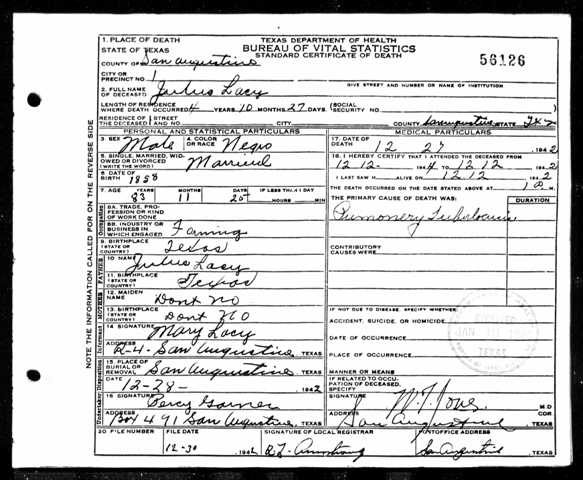 TEXAS DEPARTMENT OF HEALTH
BUREAU OF VITAL STATISTICS
STANDARD CERTIFICATE OF DEATH
56126
1. PLACE OF DEATH
STATE OF TEXAS
COUNTY OF San Augustine
CITY OR
PRECINCT NO. 1
GIVE STREET AND NUMBER OR NAME OF INSTITUTION
2. FULL NAME
OF DECEASED Julus Lacy
LENGTH OF RESIDENCE
WHERE DEATH OCCURRED 4 YEARS 10 MONTHS 27 DAYS. (SOCIAL
SECURITY NO.
RESIDENCE OF STREET
THE DECEASED AND NO. CITY COUNTY Sanaugustine STATE
PERSONAL AND STATISTICAL PARTICULARS
3. SEX Male 4. COLOR
OR RACE Negro
5. SINGLE, MARRIED, WID-
OWED OR DIVORCED
(WRITE THE WORD) Married
6. DATE OF
BIRTH 1858
7. AGE YEARS 83 MONTHS 11 DAYS 25 IF LESS THAN 1 DAY
HOURS MIN
Occupation
8A. TRADE, PRO-
FESSION OR KIND
OF WORK DONE
8B. INDUSTRY OR
BUSINESS IN
WHICH ENGAGED Faming
9. BIRTHPLACE
(STATE OR
COUNTRY) Texas
FATHER
10 NAME Julus Lacy
11. BIRTHPLACE
(STATE OR
COUNTRY) Texas
MOTHER
12. MAIDEN
NAME Dont No
13. BIRTHPLACE
(STATE OR
COUNTRY) Dont No
Informant
14 SIGNATURE Mary Lacy
ADDRESS R-4- San Augustine, TEXAS
15. PLACE OF
BURIAL OR
REMOVAL San Augustine, TEXAS
DATE 12-28- 1942
16 SIGNATURE Percy Garner
ADDRESS Box 491 San Augustine, TEXAS
MEDICAL PARTICULARS
17. DATE OF
DEATH 12 27 1942
18. I HEREBY CERTIFY THAT I ATTENDED THE DECEASED FROM
12-12- TO 12 12 1942
I LAST SAW H ALIVE ON 12 12 1942
THE DEATH OCCURRED ON THE DATE STATED ABOVE AT M
THE PRIMARY CAUSE OF DEATH WAS: DURATION
CONTRIBUTORY
CAUSES WERE:
IF NOT DUE TO DISEASE, SPECIFY WHETHER:
ACCIDENT, SUICIDE, OR HOMICIDE
DATE OF OCCURRENCE
PLACE OF OCCURRENCE
MANNER OR MEANS
IF RELATED TO OCCU-
PATION OF DECEASED,
SPECIFY
SIGNATURE M D
ADDRESS San Augustine COR
TEXAS
20 FILE NUMBER FILE DATE 12-30 1942 SIGNATURE OF LOCAL REGISTRAR R.L. Armstrong POSTOFFICE ADDRESS San Augustine, TEXAS
NOTE THE INFORMATION CALLED FOR ON THE REVERSE SIDE
TEXAS